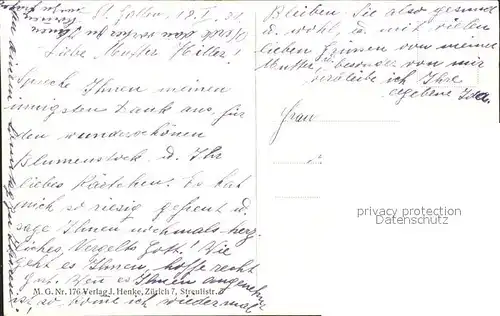 St. Gallen, 18. I. 31.
Liebe Mutter Hitler!
Spreche Ihnen meinen
innigsten Dank aus, für
den wunderschönen
Blumenstock u. Ihr
liebes Kärtchen. Es hat
mich so riesig gefreut u.
sage Ihnen nochmals herz
liches Vergelts Gott! Wie
geht es Ihnen, hoffe recht
gut. Wen es Ihnen angenehm
ist so kome ich wiedermal
M. G. Nr. 176 Verlag J. Henke, Zürich 7, Streulistr.
Bleiben Sie also gesund
u. wohl, u. mit vielen
lieben Grüssen von meiner
Mutter u. besonders von mir
verbleibe ich Ihre
ergebene
Frau
privacy protection
Datenschutz